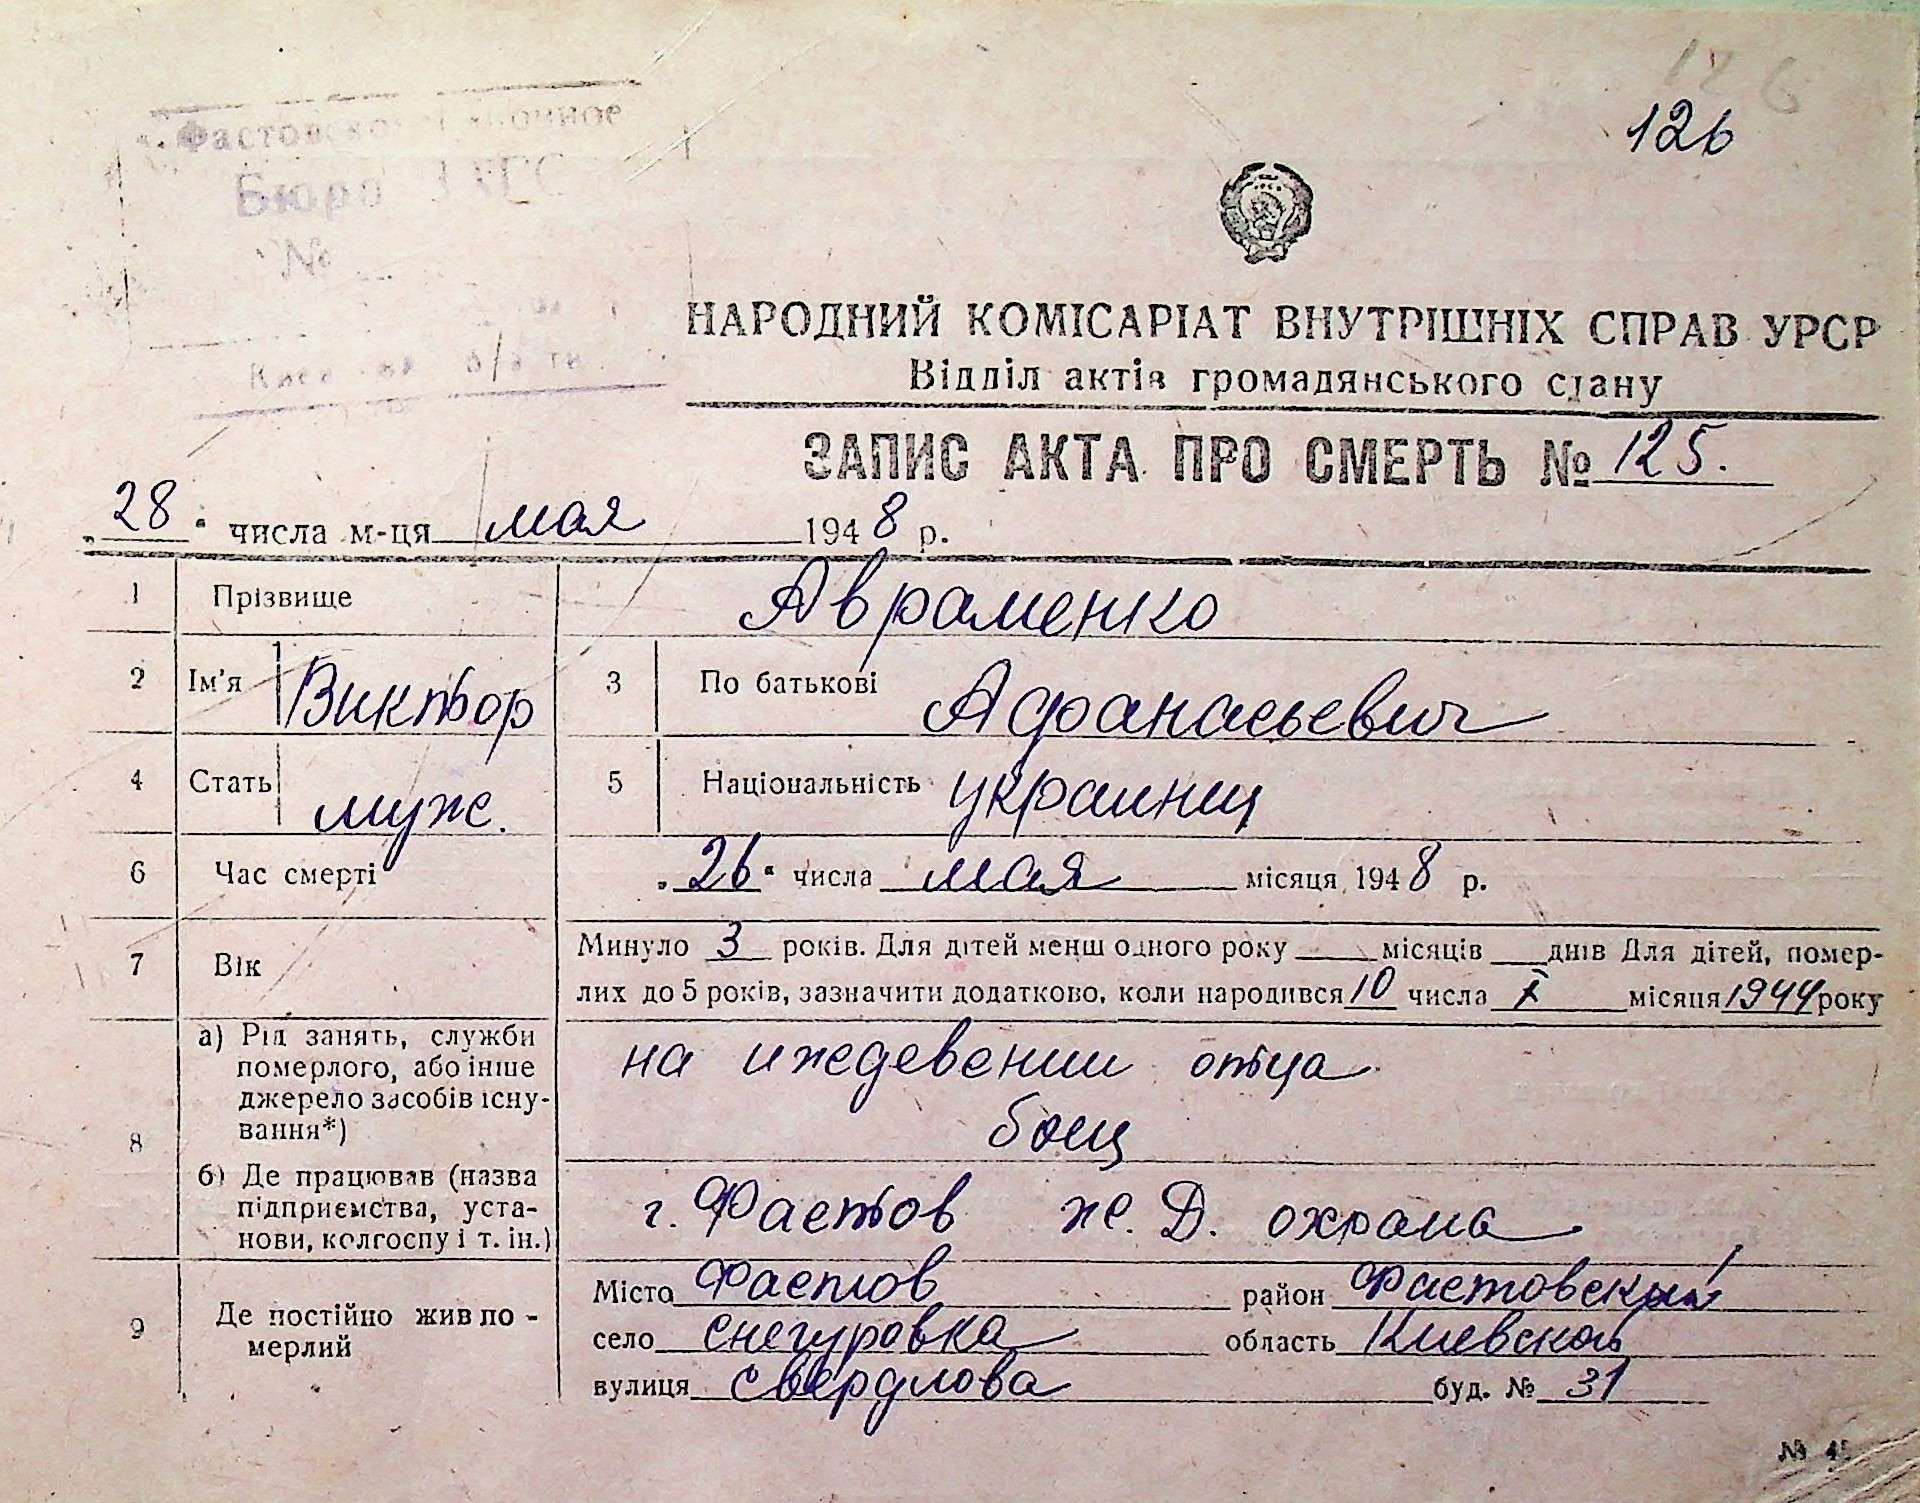 126
126
Бюро
№
НАРОДНИЙ КОМІСАРІАТ ВНУТРІШНІХ СПРАВ УРСР
Відділ актів громадянського стану
ЗАПИС АКТА ПРО СМЕРТЬ № 125.
„28“ числа м-ця мая 1948 р.
1 Прізвище Авраменко
2 Ім'я Виктор 3 По батькові Афанасьевич
4 Стать муж. 5 Національність украинец
6 Час смерті „26“ числа мая місяця 1948 р.
7 Вік Минуло 3 років. Для дітей менш одного року ___ місяців ___ днів Для дітей, помер-
лих до 5 років, зазначити додатково, коли народився 10 числа X місяця 1944 року
8 а) Рід занять, служби
померлого, або інше
джерело засобів існу-
вання*)
на иждевении отца
боец
б) Де працював (назва
підприємства, уста-
нови, колгоспу і т. ін.)
г. Фастов ж. Д. охрана
9 Де постійно жив по-
мерлий
Місто Фастов район Фастовский
село Снегуровка область Киевской
вулиця Свердлова буд. № 31